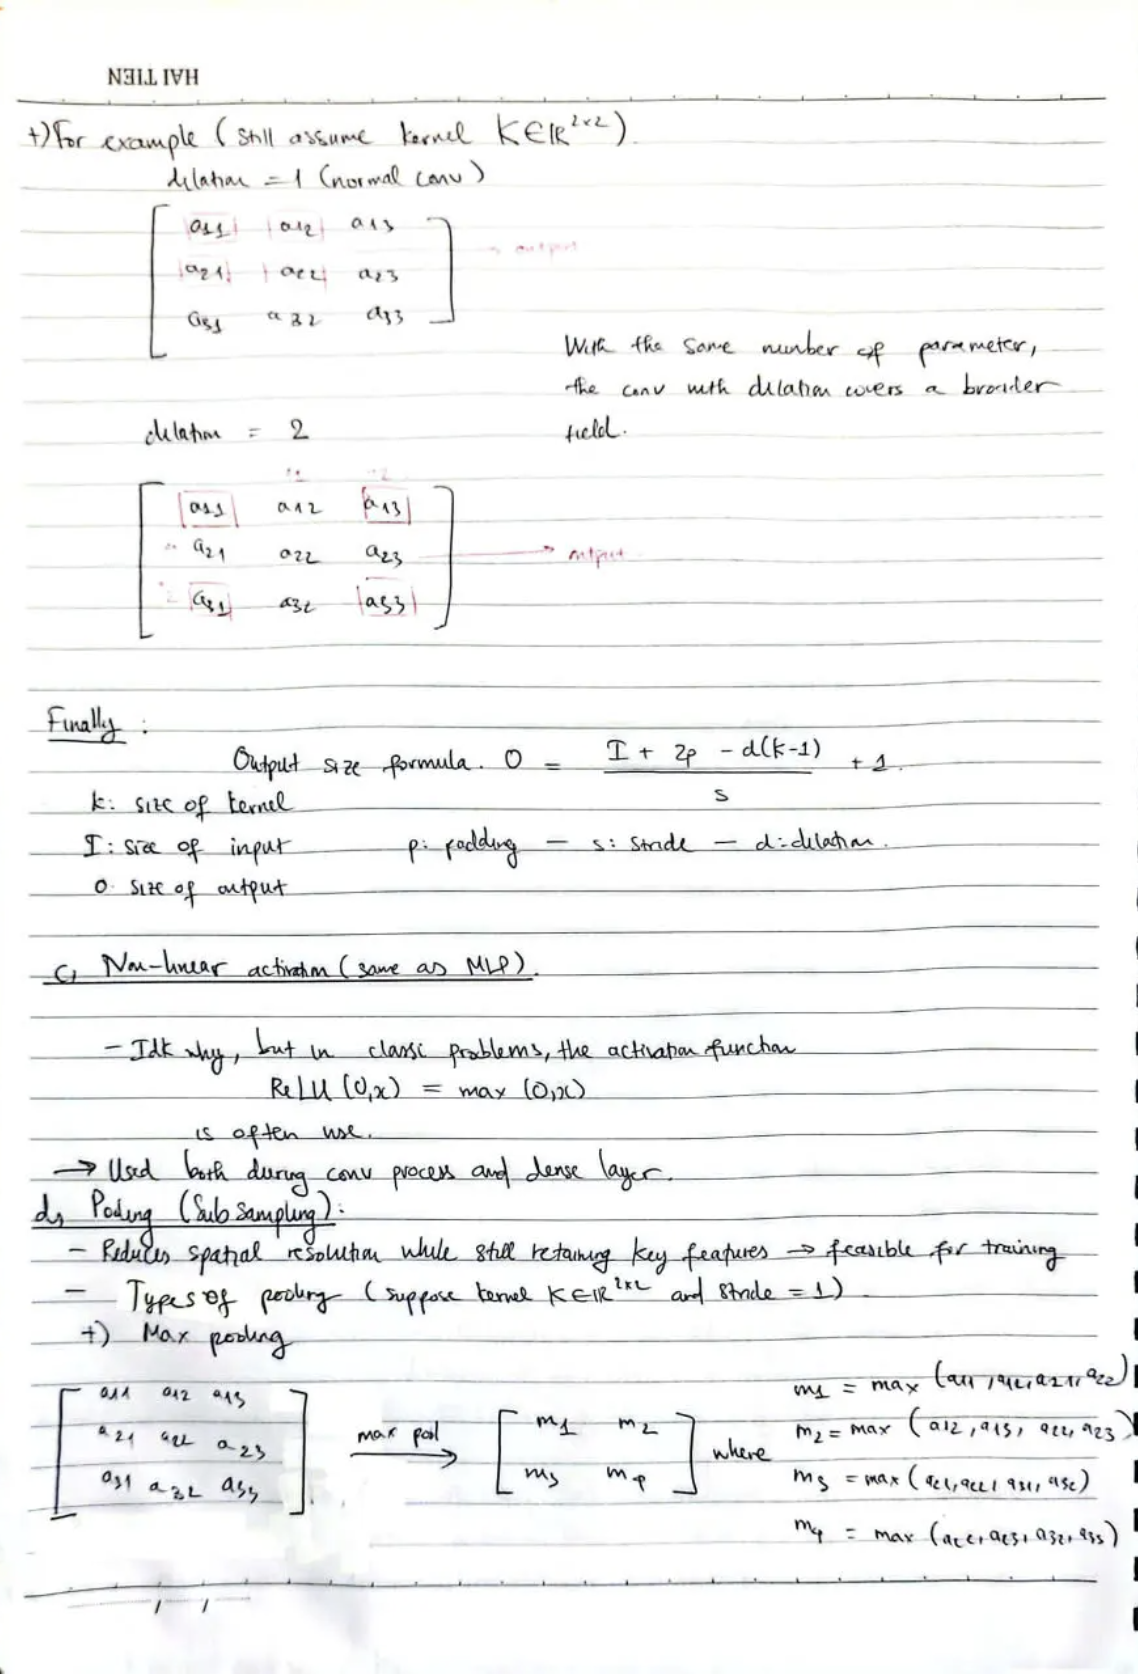 HAI TIEN
+) For example (still assume kernel K∈ℝ^2×2).
dilation = 1 (normal conv)
a11 a12 a13
→ output
a21 a22 a23
a31 a32 a33
With the same number of parameter,
the conv with dilation covers a broader
field.
dilation = 2
a11 a12 a13
a21 a22 a23 → output
a31 a32 a33
Finally :
Output size formula. O = (I + 2p - d(k-1)) / s + 1.
k: size of kernel
I: size of input p: padding — s: stride — d: dilation.
O: size of output
c, Non-linear activation (same as MLP).
- Idk why, but in classic problems, the activation function
ReLU (0,x) = max (0,x)
is often use.
→ Used both during conv process and dense layer.
d, Pooling (Sub sampling):
- Reduces spatial resolution while still retaining key features → feasible for training
- Types of pooling (suppose kernel K∈ℝ^2×2 and stride = 1).
+) Max pooling
a11 a12 a13
a21 a22 a23
a31 a32 a33
max pool
m1 m2
m3 m4
where
m1 = max (a11, a12, a21, a22)
m2 = max (a12, a13, a22, a23)
m3 = max (a21, a22, a31, a32)
m4 = max (a22, a23, a32, a33)